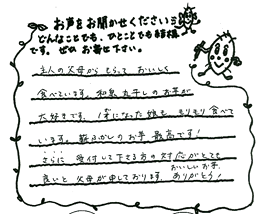 お声をお聞かせください
どんなことでも、ひとことでも結構
です。ぜひ お寄せ下さい。
主人の父母から もらって おいしく
食べています。和泉 丸干しのお芋が
大好きです。1才になった娘も もりもり食べて
います。蔵ふかしのお芋 最高です!
さらに 受付して下さる方の対応がとても
良いと 父母が申しております。
おいしいお芋
ありがとう!